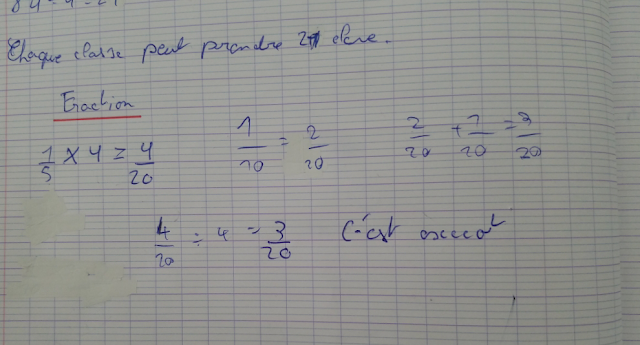 84 ÷ 4 = 21
Chaque classe peut prendre 21 élève.
Fraction
1/5 x 4 = 4/20 1/10 = 2/20 2/20 + 1/20 = 3/20
4/20 ÷ 4 = 3/20 C'est